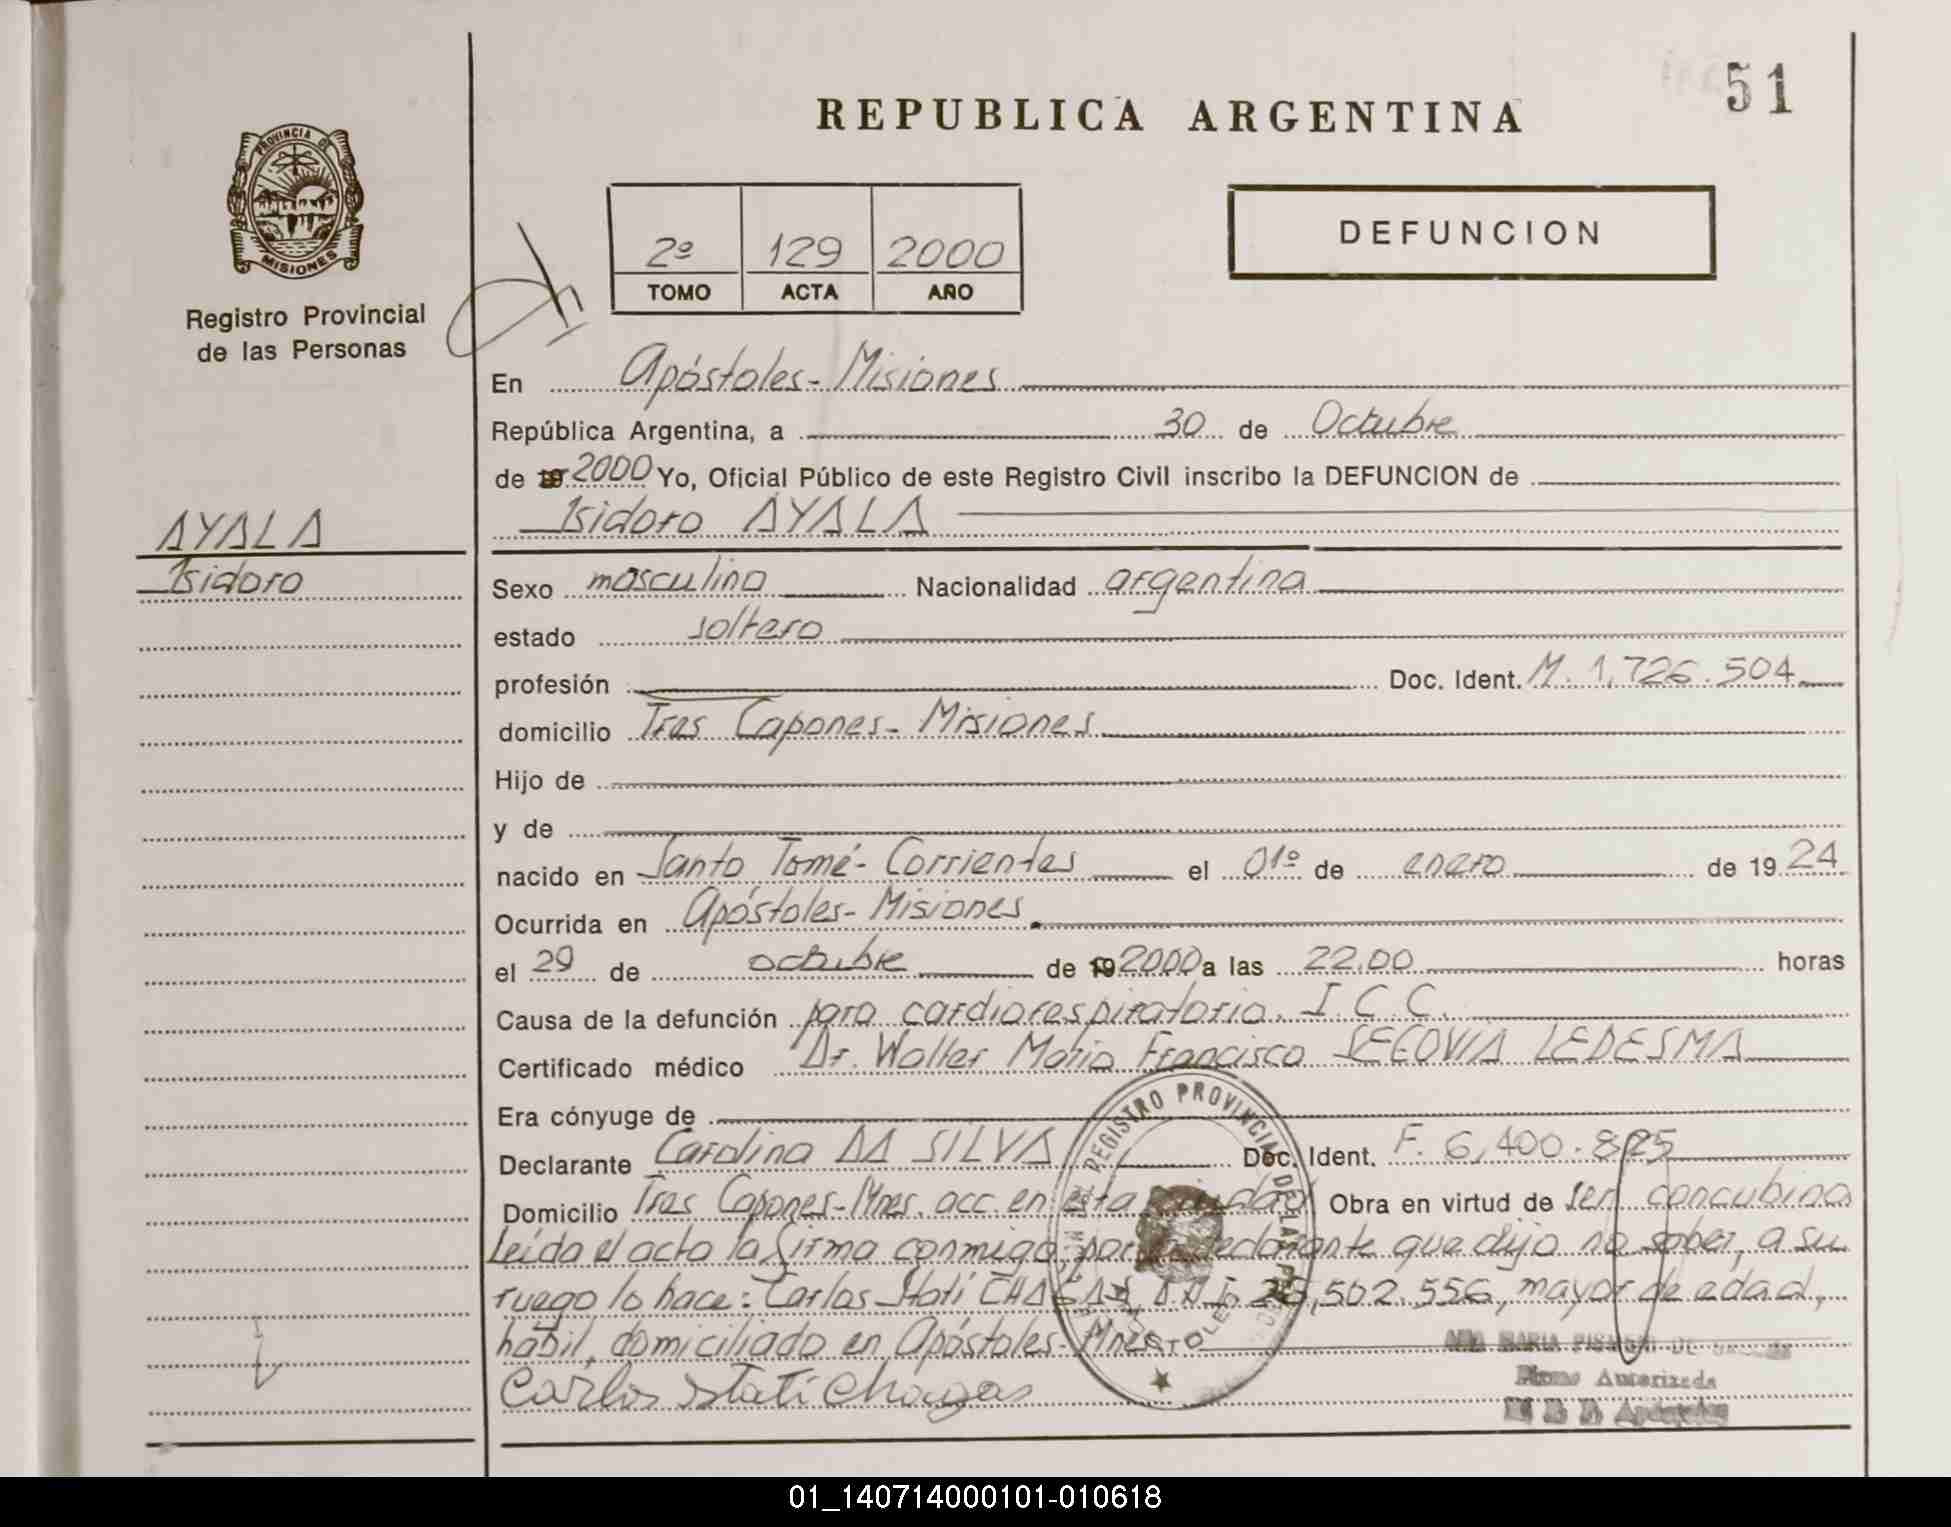 51
REPUBLICA ARGENTINA
PROVINCIA DE
MISIONES
Registro Provincial
de las Personas
2º 129 2000
TOMO ACTA AÑO
DEFUNCION
En Apóstoles - Misiones
República Argentina, a 30 de Octubre
de 19 2000 Yo, Oficial Público de este Registro Civil inscribo la DEFUNCION de
Isidoro AYALA
AYALA
Isidoro
Sexo masculino Nacionalidad argentina
estado soltero
profesión Doc. Ident. M. 1,726.504
domicilio Tres Capones - Misiones
Hijo de
y de
nacido en Santo Tomé - Corrientes el 01º de enero de 19 24
Ocurrida en Apóstoles - Misiones
el 29 de octubre de 19 2000 a las 22,00 horas
Causa de la defunción paro cardiorespiratorio. I.C.C.
Certificado médico Dr. Walter Mario Francisco SEGOVIA LEDESMA
Era cónyuge de
Declarante Carolina DA SILVA Doc. Ident. F. 6,400.825
Domicilio Tres Capones - Mnes. acc. en esta ciudad Obra en virtud de ser concubina
Leída el acta la firma conmigo, por la declarante que dijo no saber, a su
ruego lo hace: Carlos Stati CHAGAS, D.N.I. 502.556, mayor de edad,
hábil, domiciliado en Apóstoles - Mnes
Carlos Stati Chagas
REGISTRO PROVINCIAL DE LAS
ANA MARIA DE
Firma Autorizada
Apóstoles
01_140714000101-010618